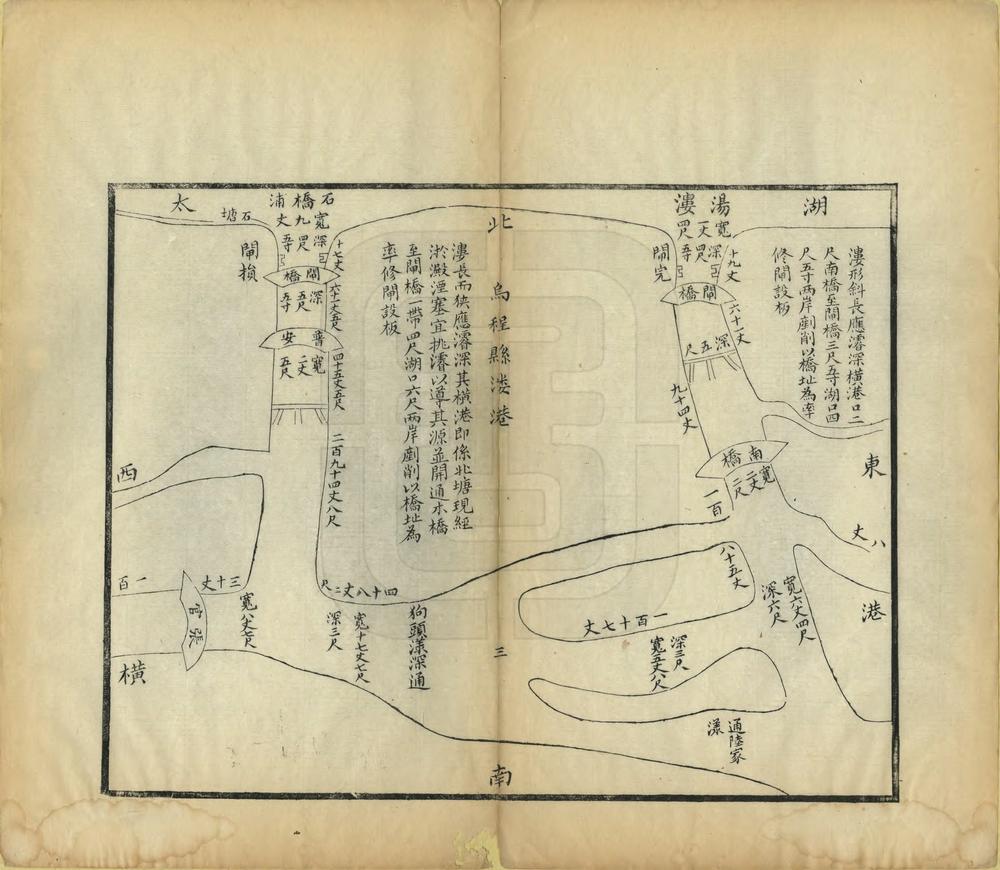 湖
湯漊
寬一丈四尺
深四尺五寸
十九丈
閘完
閘橋
六十一丈
深五尺
九十四丈
南橋
寬二丈二尺
一百
八十五丈
漊形斜長應濬深橫港口二
尺南橋至閘橋三尺五寸湖口四
尺五寸兩岸剷削以橋址為率
修閘設板
東
八丈
港
寬六丈四尺
深六尺
一百十七丈
深三尺
寬五丈八尺
通陸家
漾
北
烏程縣漊港
三
南
漊長而狹應濬深其橫港即係北塘現經
淤澱湮塞宜挑濬以導其源並開通木橋
至閘橋一帶四尺湖口六尺兩岸剷削以橋址為
率修閘設板
太
石塘
石橋浦
寬九丈
深四尺五寸
十七丈
閘損
閘橋
六十一丈五尺
深五尺五寸
普安
四十五丈五尺
寬二丈五尺
二百九十四丈八尺
四十八丈二尺
狗頭漾深通
寬十七丈七尺
深三尺
西
一百
三十丈
張官
寬八丈七尺
橫